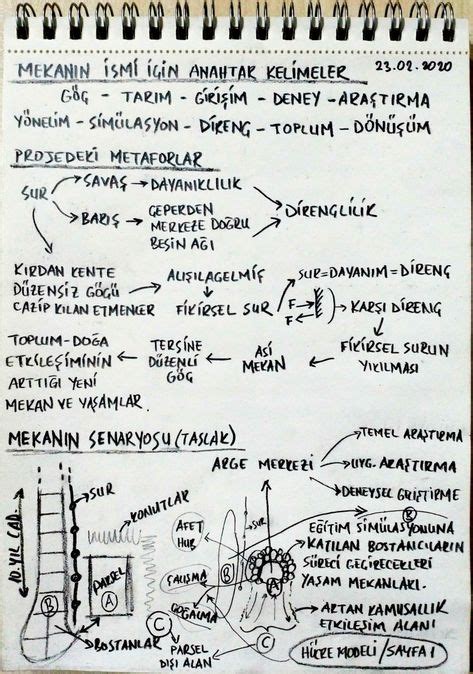 MEKANIN İSMİ İÇİN ANAHTAR KELİMELER 23.02.2020
GÖÇ - TARIM - GİRİŞİM - DENEY - ARAŞTIRMA
YÖNELİM - SİMÜLASYON - DİRENÇ - TOPLUM - DÖNÜŞÜM
PROJEDEKİ METAFORLAR
SUR → SAVAŞ → DAYANIKLILIK
→ BARIŞ → ÇEPERDEN
MERKEZE DOĞRU
BESİN AĞI
DİRENÇLİLİK
KIRDAN KENTE
DÜZENSİZ GÖÇÜ
CAZİP KILAN ETMENLER
ALIŞILAGELMİŞ
FİKİRSEL SUR
SUR=DAYANIM=DİRENÇ
F
F
KARŞI DİRENÇ
FİKİRSEL SURUN
YIKILMASI
ASİ
MEKAN
TERSİNE
DÜZENLİ
GÖÇ
TOPLUM-DOĞA
ETKİLEŞİMİNİN
ARTTIĞI YENİ
MEKAN VE YAŞAMLAR.
MEKANIN SENARYOSU (TASLAK)
ARGE MERKEZİ
TEMEL ARAŞTIRMA
UYG. ARAŞTIRMA
DENEYSEL GELİŞTİRME
10. YIL CAD.
SUR
KONUTLAR
PARSEL
A
B
BOSTANLAR
C
PARSEL
DIŞI ALAN
AFET
HUB
ÇALIŞMA
B
SUR
A
C
EĞİTİM SİMÜLASYONUNA
KATILAN BOSTANCILARIN
SÜRECİ GEÇİRECEKLERİ
YAŞAM MEKANLARI.
ARTAN KAMUSALLIK
ETKİLEŞİM ALANI
HÜCRE MODELİ / SAYFA 1